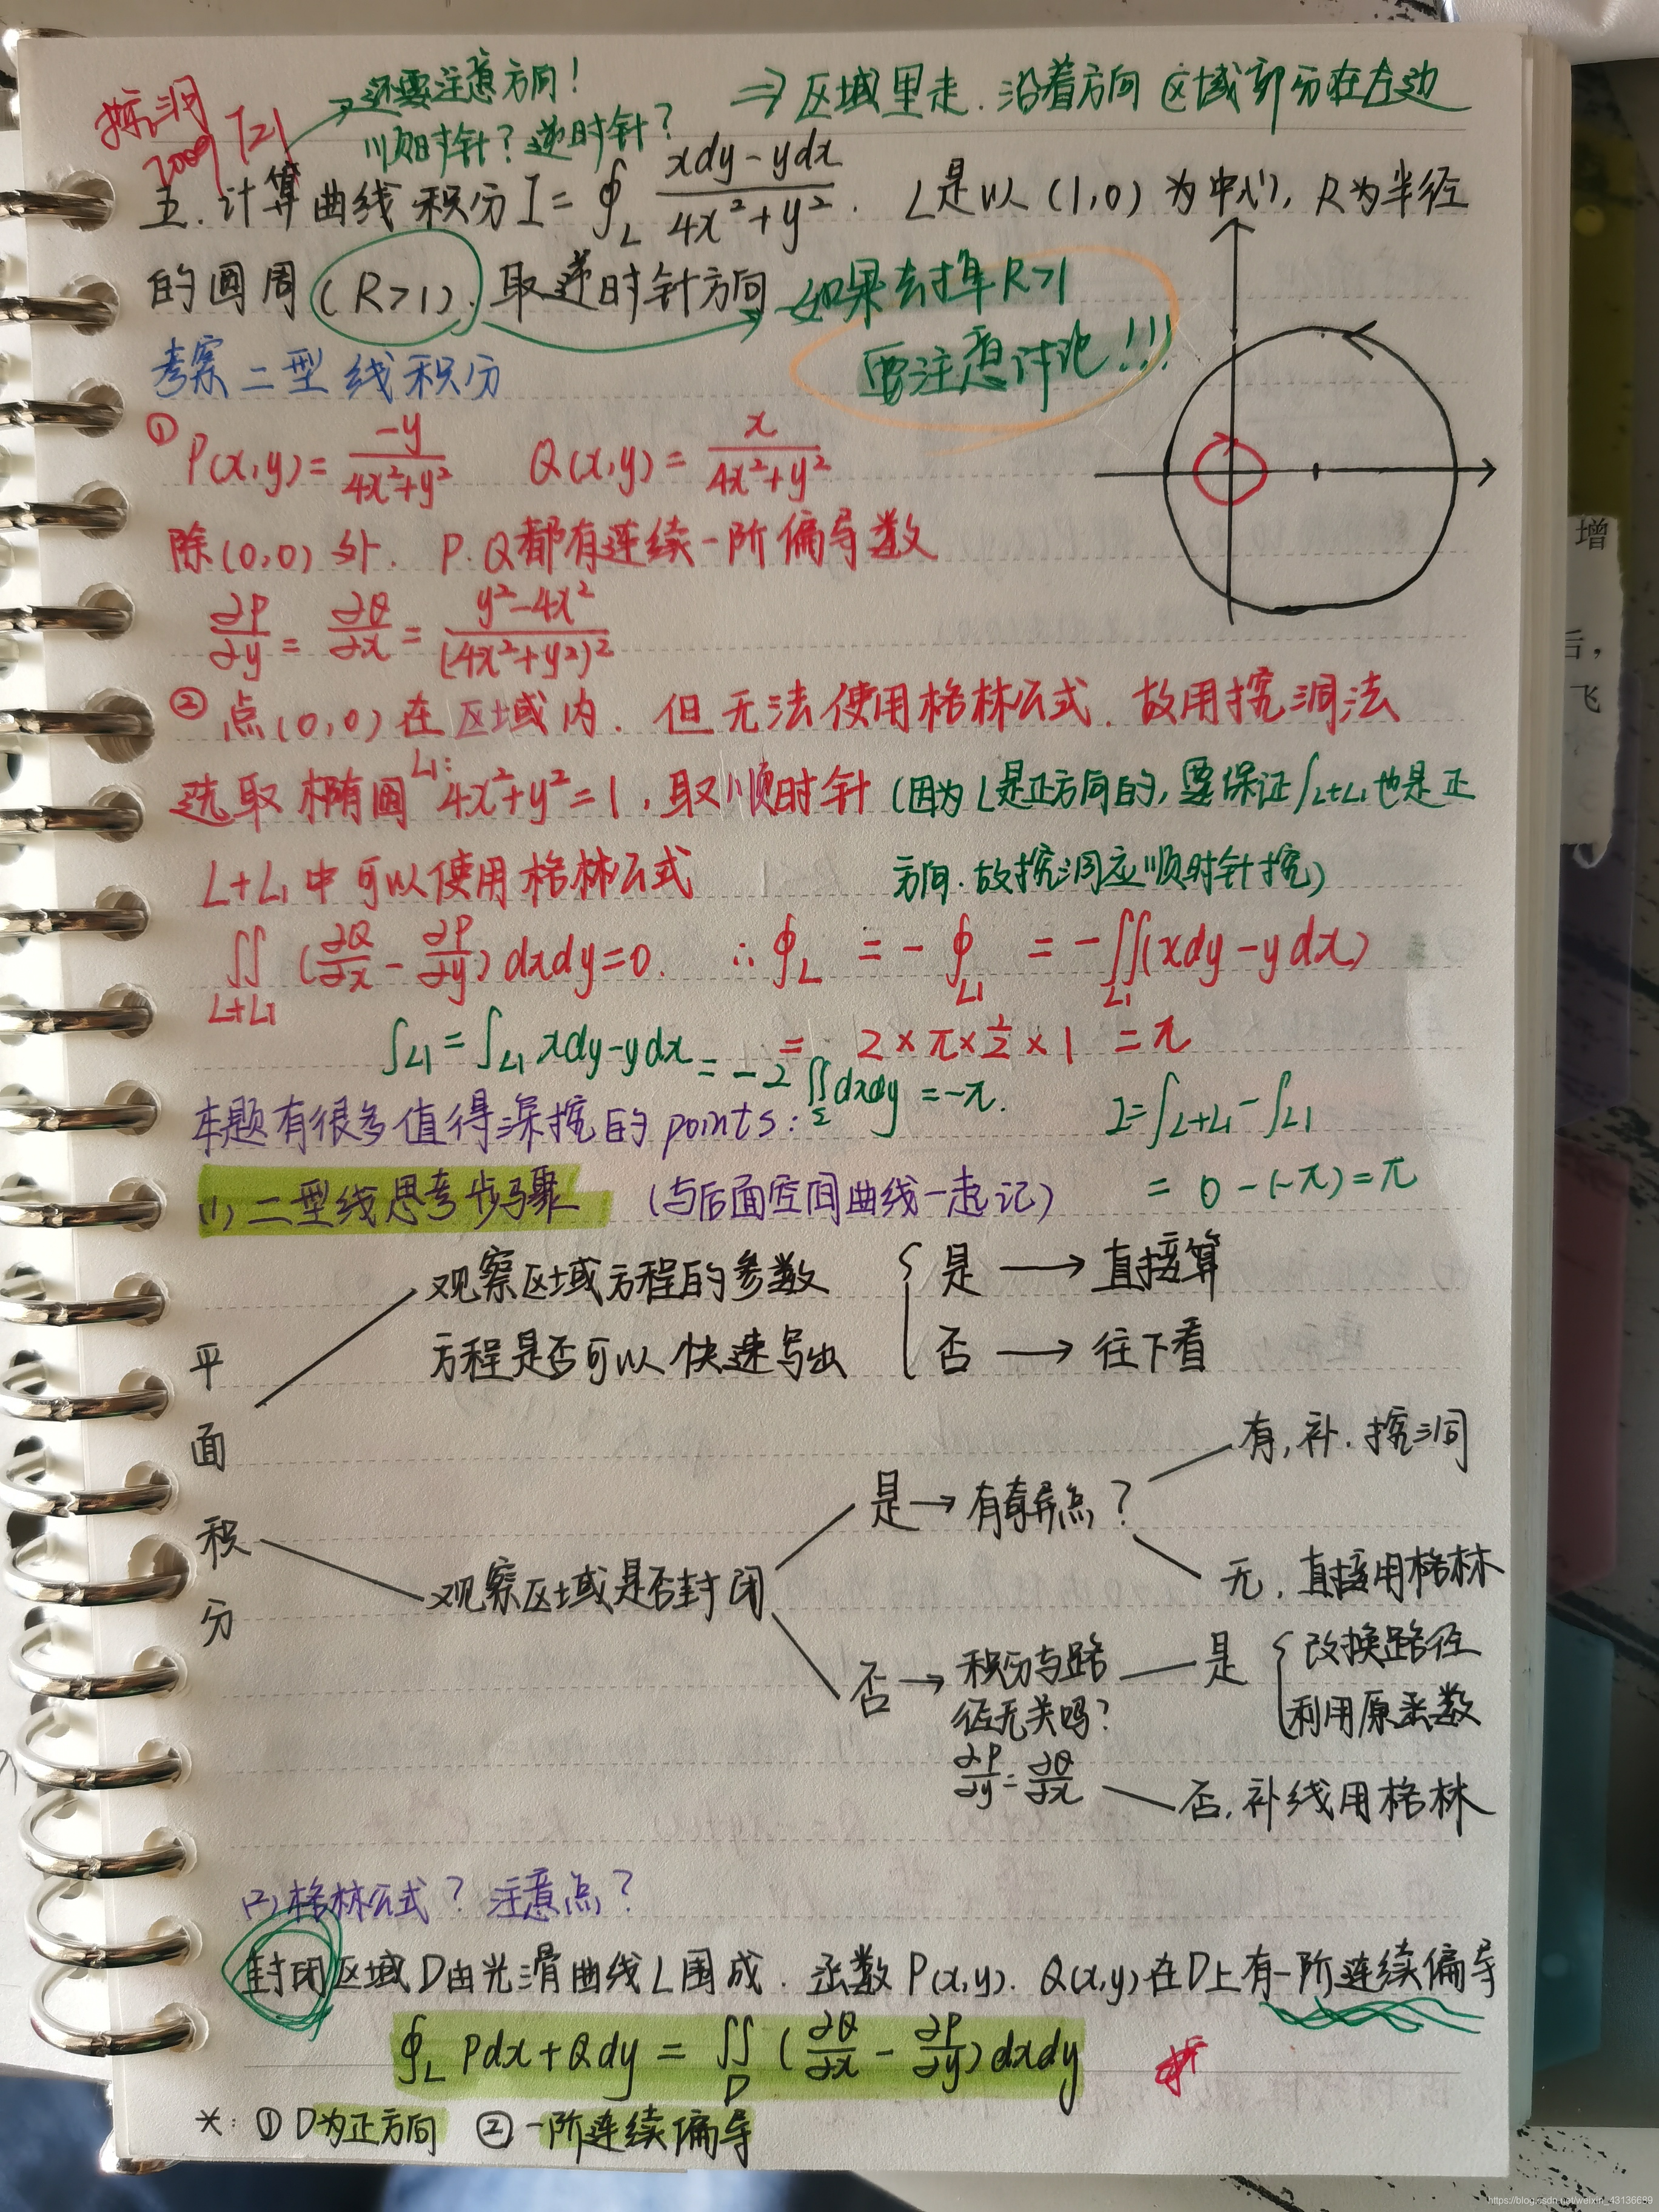 挖洞
2009 T21
还要注意方向!
顺时针?逆时针?
⇒ 区域里走.沿着方向 区域部分在左边
五.计算曲线积分 I = ∮_L (xdy-ydx)/(4x²+y²). L是以(1,0)为中心, R为半径
的圆周(R>1).取逆时针方向
如果去掉R>1
要注意讨论!!!
考察二型线积分
① P(x,y) = -y/(4x²+y²) Q(x,y) = x/(4x²+y²)
除(0,0)外. P.Q都有连续一阶偏导数
∂P/∂y = ∂Q/∂x = (y²-4x²)/(4x²+y²)²
② 点(0,0)在区域内. 但无法使用格林公式. 故用挖洞法
选取椭圆 L₁: 4x²+y²=1, 取顺时针 (因为L是正方向的,要保证∫_{L+L₁}也是正
L+L₁中可以使用格林公式 方向.故挖洞应顺时针挖)
∬_{L+L₁} (∂Q/∂x - ∂P/∂y) dxdy=0. ∴ ∮_L = - ∮_{L₁} = -∬_{L₁}(xdy-ydx)
= 2×π×½×1 = π
∫_{L₁} = ∫_{L₁} xdy-ydx = -2∬_Σ dxdy = -π.
本题有很多值得深挖的points:
I=∫_{L+L₁} - ∫_{L₁}
= 0-(-π)=π
(1)二型线思考步骤 (与后面空间曲线一起记)
平面积分
观察区域方程的参数
方程是否可以快速写出
是 → 直接算
否 → 往下看
观察区域是否封闭
是→ 有奇异点?
有,补.挖洞
无. 直接用格林
否→ 积分与路
径无关吗?
∂P/∂y = ∂Q/∂x
是
改换路径
利用原函数
否.补线用格林
(2)格林公式? 注意点?
封闭区域D由光滑曲线L围成. 函数P(x,y). Q(x,y)在D上有一阶连续偏导
∮_L Pdx+Qdy = ∬_D (∂Q/∂x - ∂P/∂y)dxdy
*: ① D为正方向 ② 一阶连续偏导
增
后,
飞
https://blog.csdn.net/weixin_43136689